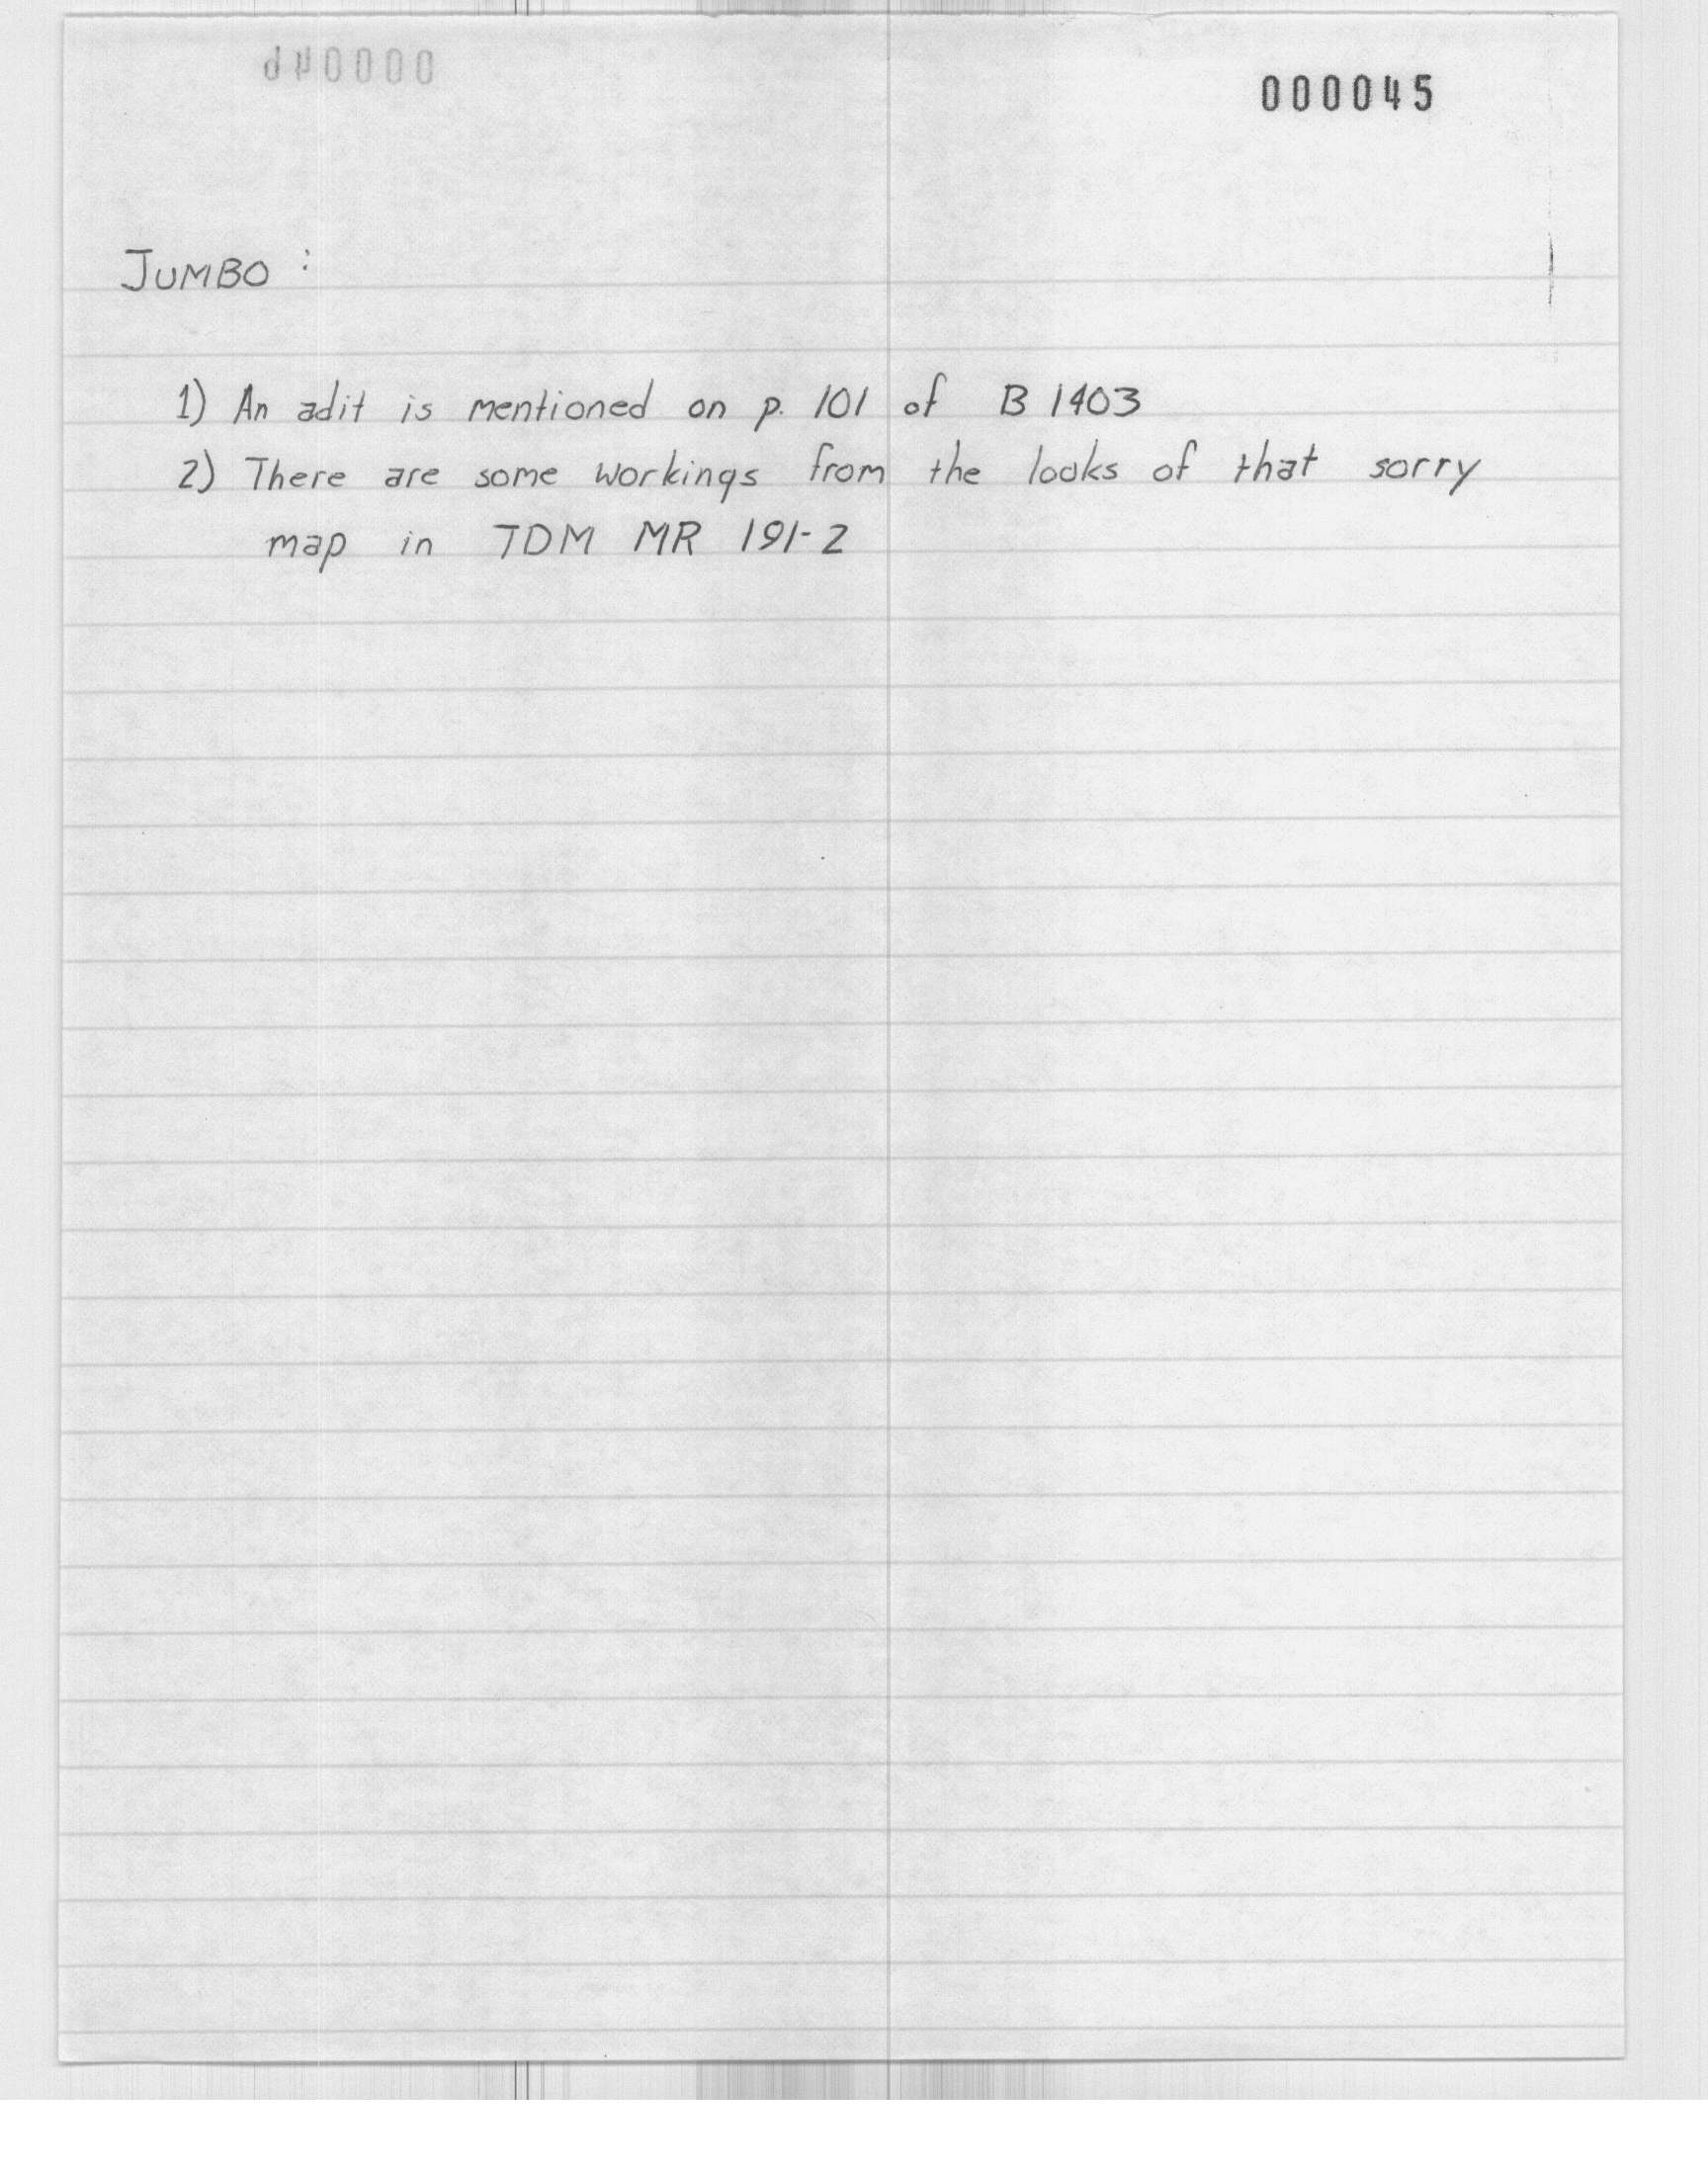 000045
JUMBO :
1) An adit is mentioned on p. 101 of B 1403
2) There are some workings from the looks of that sorry
map in TDM MR 191-2